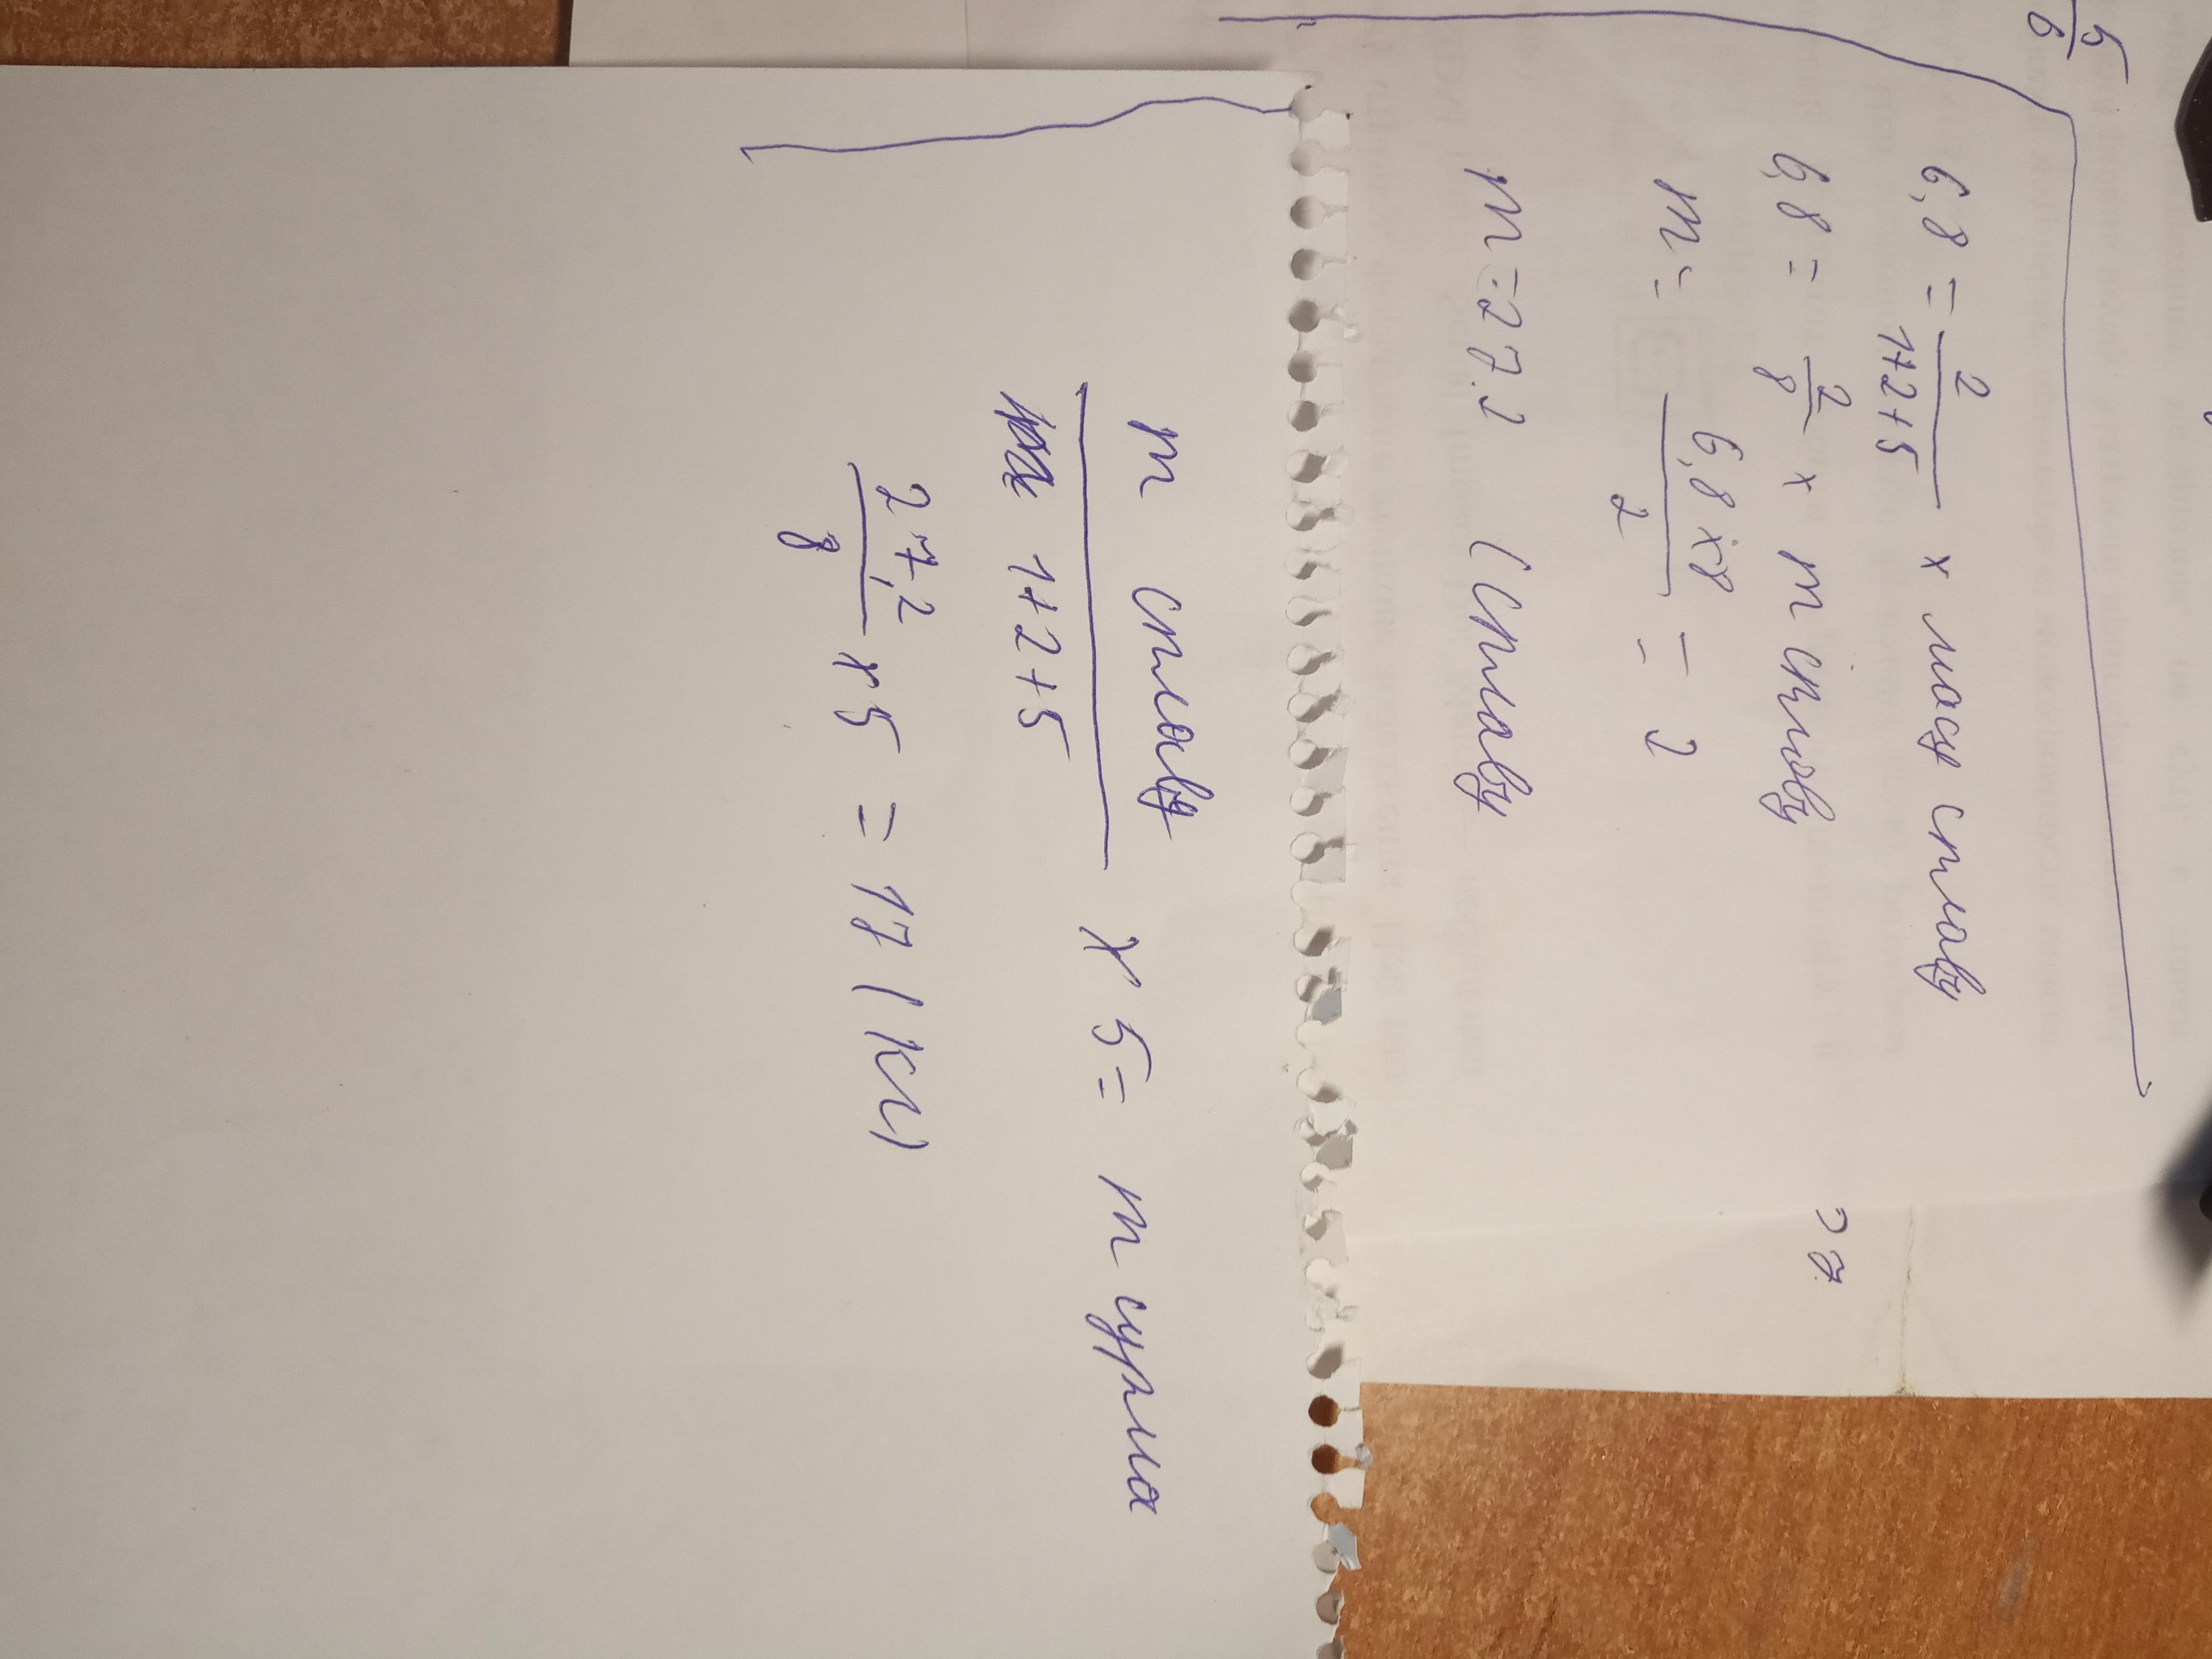 5/6
6,8 = 2/(1+2+5) x маса сплаву
6,8 = 2/8 x m сплаву
m = (6,8 x 8)/2 = 2
m = 27.2 (сплаву
m сплаву/(1+2+5) x 5 = m цурма
27,2/8 x 5 = 17 (кг)